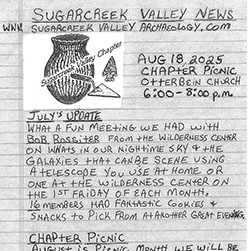 Sugarcreek Valley News
www.sugarcreek valley archaeology.com
Sugarcreek Valley Chapter
Aug 18, 2025
Chapter Picnic
Otterbein Church
6:00-8:00 p.m.
July's Update
What a fun meeting we had with
Bob Rossiter from the Wilderness Center
on whats in our nightime sky & the
galaxies that canbe scene using
a telescope you use at home or
one at the Wilderness Center on
the 1st Friday of each month.
16 members had fantastic cookies &
snacks to pick from at another great evening.
Chapter Picnic
August is Picnic month we will be